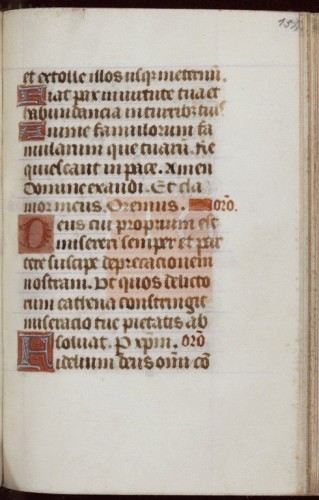 et extolle illos usqz in eternū.
Fiat pax in virtute tua et
habundancia in turribus tuis
anime famulorum fa
mularum que tuarū. Re
quiescant in pace. Amen
Domine exaudi. Et cla
mor meus. Oremus. orō.
Deus cui proprium est
misereri semper et par
cere suscipe deprecacionem
nostram. Ut quos delicto
rum cathena constringit
miseracio tue pietatis ab
soluat. P xp̄m. orō
Fidelium deus omī cō